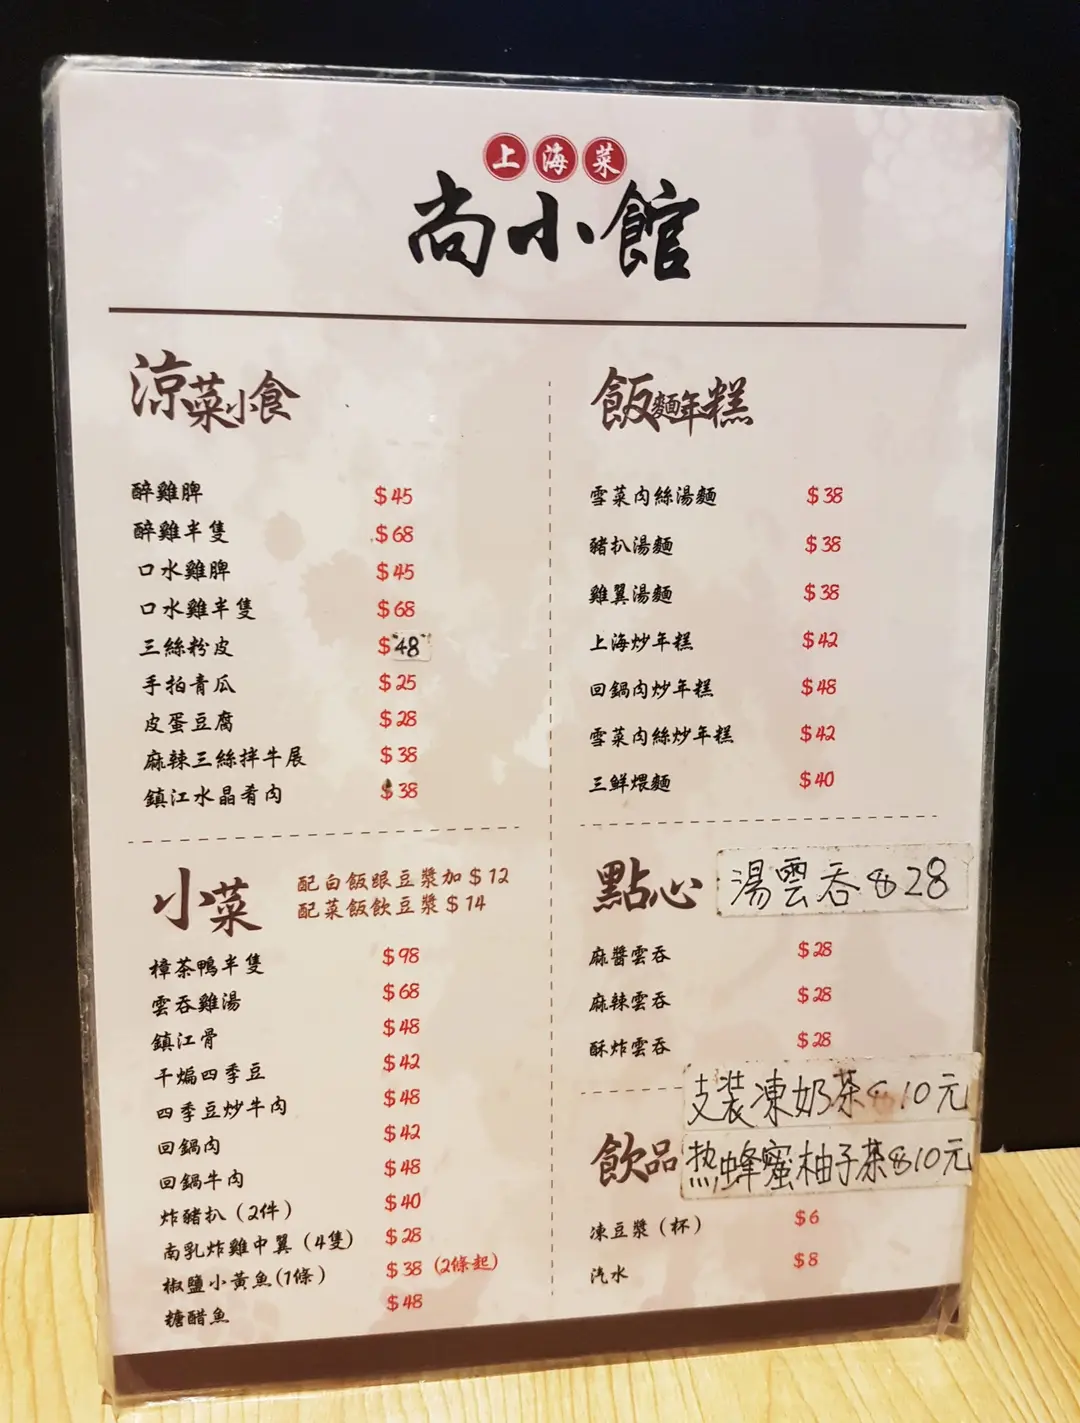 上海菜
尚小館
涼菜小食
醉雞脾 $45
醉雞半隻 $68
口水雞脾 $45
口水雞半隻 $68
三絲粉皮 $48
手拍青瓜 $25
皮蛋豆腐 $28
麻辣三絲拌牛展 $38
鎮江水晶肴肉 $38
小菜
配白飯跟豆漿加 $12
配菜飯飲豆漿 $14
樟茶鴨半隻 $98
雲吞雞湯 $68
鎮江骨 $48
干煸四季豆 $42
四季豆炒牛肉 $48
回鍋肉 $42
回鍋牛肉 $48
炸豬扒（2件） $40
南乳炸雞中翼（4隻） $28
椒鹽小黃魚(1條) $38 (2條起)
糖醋魚 $48
飯麵年糕
雪菜肉絲湯麵 $38
豬扒湯麵 $38
雞翼湯麵 $38
上海炒年糕 $42
回鍋肉炒年糕 $48
雪菜肉絲炒年糕 $42
三鮮煨麵 $40
點心
湯雲吞$28
麻醬雲吞 $28
麻辣雲吞 $28
酥炸雲吞 $28
支装凍奶茶$10元
飲品
热蜂蜜柚子茶$10元
凍豆漿（杯） $6
汽水 $8